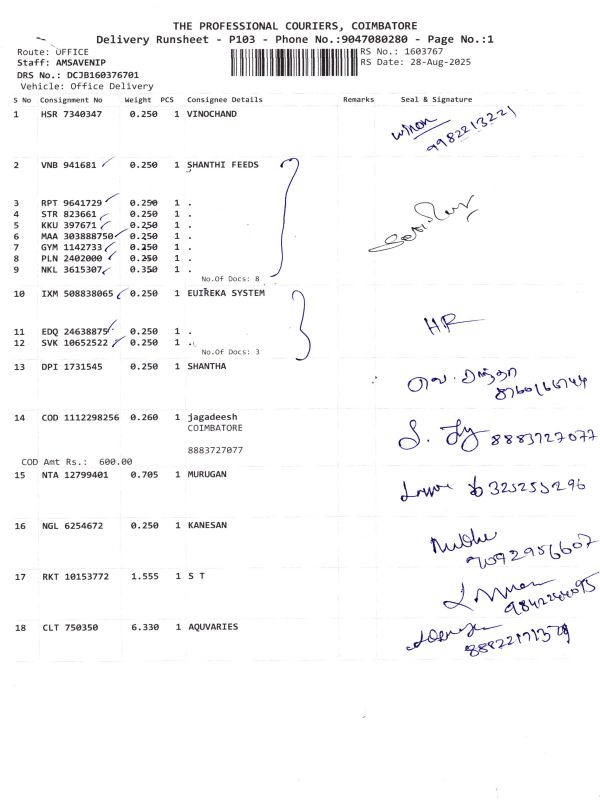 THE PROFESSIONAL COURIERS, COIMBATORE
Delivery Runsheet - P103 - Phone No.:9047080280 - Page No.:1
Route: OFFICE RS No.: 1603767
Staff: AMSAVENIP RS Date: 28-Aug-2025
DRS No.: DCJB160376701
Vehicle: Office Delivery
S No Consignment No Weight PCS Consignee Details Remarks Seal & Signature
1 HSR 7340347 0.250 1 VINOCHAND
9982213221
2 VNB 941681 0.250 1 SHANTHI FEEDS
3 RPT 9641729 0.250 1 .
4 STR 823661 0.250 1 .
5 KKU 397671 0.250 1 .
6 MAA 303888750 0.250 1 .
7 GYM 1142733 0.250 1 .
8 PLN 2402000 0.250 1 .
9 NKL 3615307 0.350 1 .
No.Of Docs: 8
10 IXM 508838065 0.250 1 EUIREKA SYSTEM
HR
11 EDQ 24638875 0.250 1 .
12 SVK 10652522 0.250 1 .
No.Of Docs: 3
13 DPI 1731545 0.250 1 SHANTHA
14 COD 1112298256 0.260 1 jagadeesh
COIMBATORE
8883727077
8883727077
COD Amt Rs.: 600.00
15 NTA 12799401 0.705 1 MURUGAN
16 NGL 6254672 0.250 1 KANESAN
7092956607
17 RKT 10153772 1.555 1 S T
18 CLT 750350 6.330 1 AQUVARIES